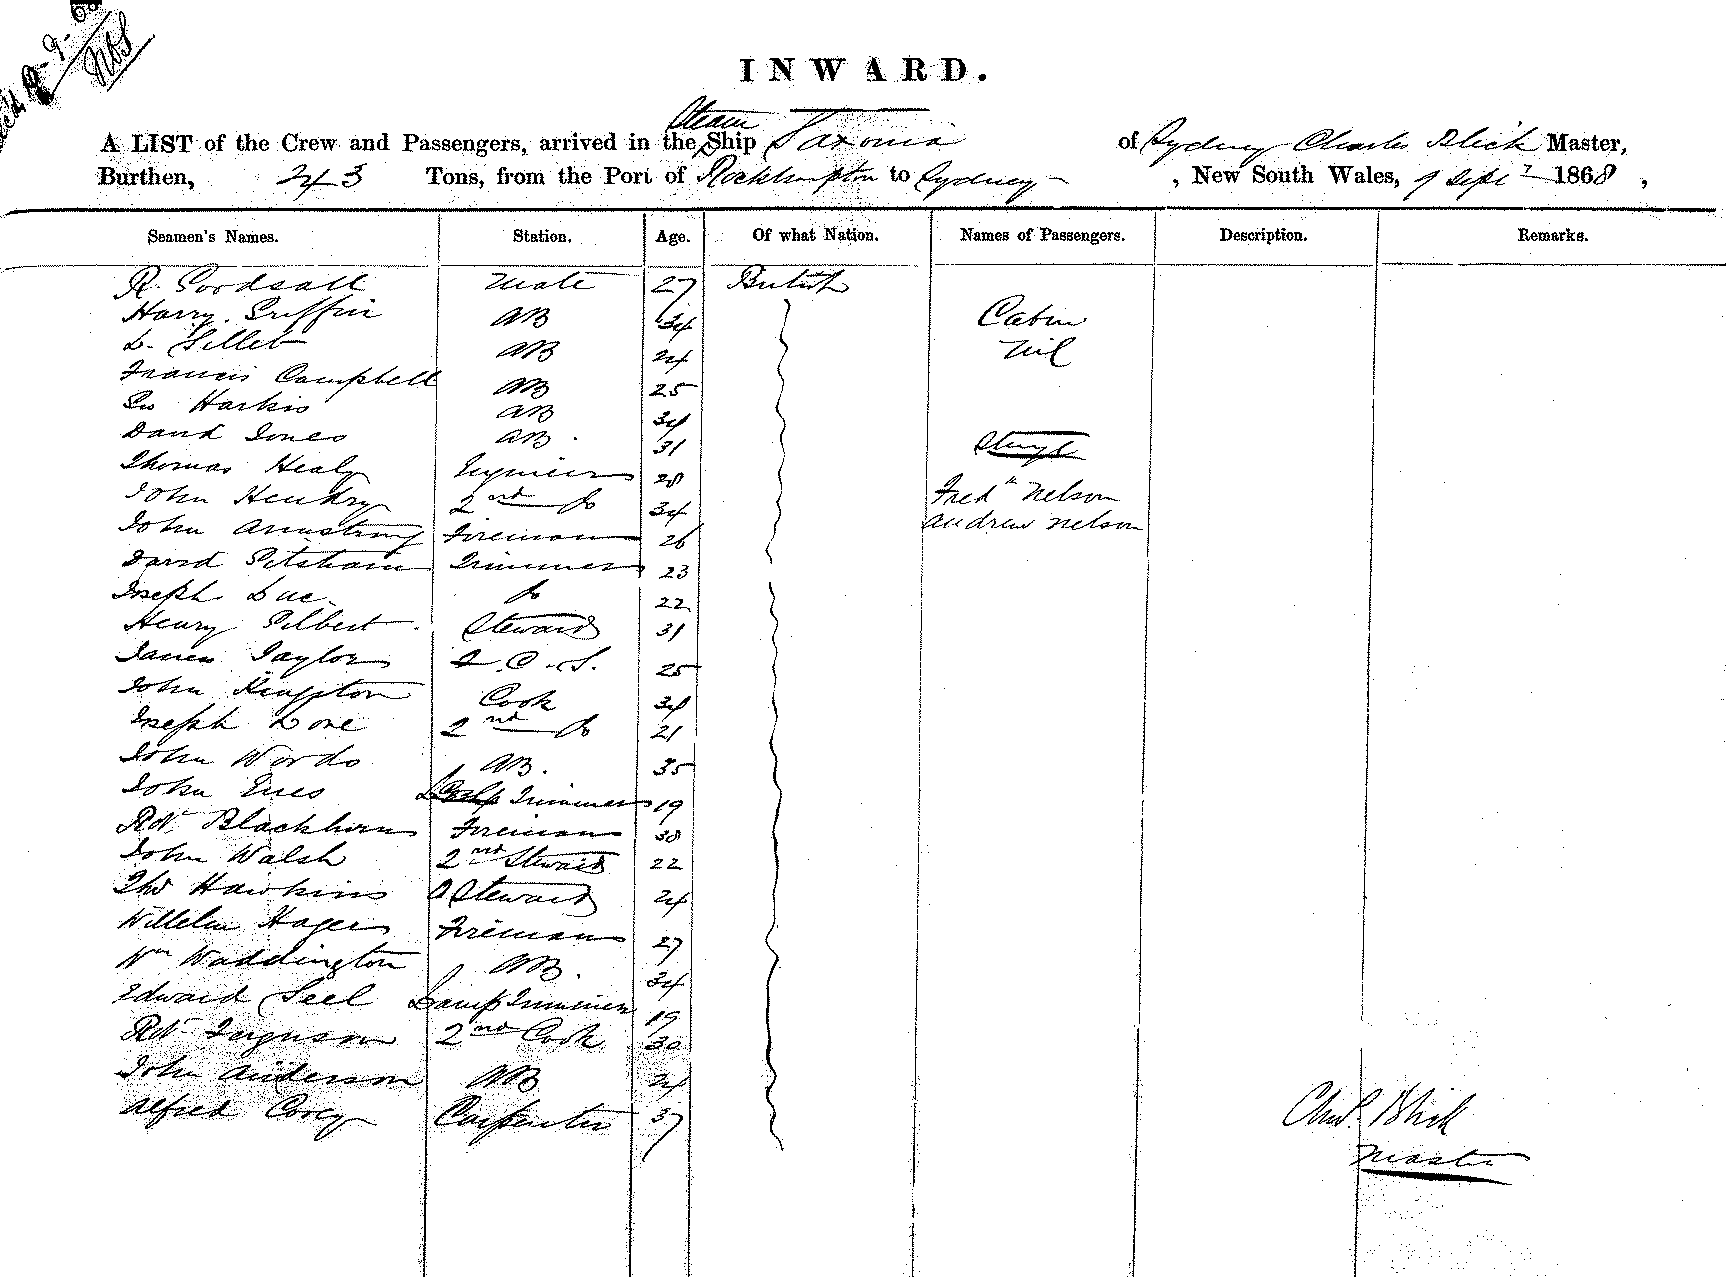 INWARD.
Steam
A LIST of the Crew and Passengers, arrived in the Ship Saxonia of Sydney Charles Blick Master,
Burthen, 243 Tons, from the Port of Rockhampton to Sydney , New South Wales, 9 Sept 1868 ,
Seamen's Names. Station. Age. Of what Nation. Names of Passengers. Description. Remarks.
R. Goodsall Mate 27 British
Harry Griffin AB 34 Cabin
L. AB 24 Nil
Francis Campbell AB 25
Harkis AB 34
David Jones AB 31
Thomas Healy Engineer 28
John Hendry 2nd Do 34 Fredk Nelson
John Armstrong Fireman 26 Andrew Nelson
David Trimmer 23
Joseph Do 22
Henry Gilbert Steward 31
James Taylor 25
John Kingston Cook 34
Joseph Love 2nd Do 21
John Words AB. 35
John Lamp Trimmer 19
Robt Blackburn Fireman 38
John Walsh 2nd Steward 22
Thos Hawkins Steward 24
Wilhelm Hager Fireman 27
Wm Waddington AB. 34
Edward Seel Lamp Trimmer 19
Robt Ferguson 2nd Cook 30
John Anderson AB 24
Alfred Corey Carpenter 37
Chas. Blick
Master